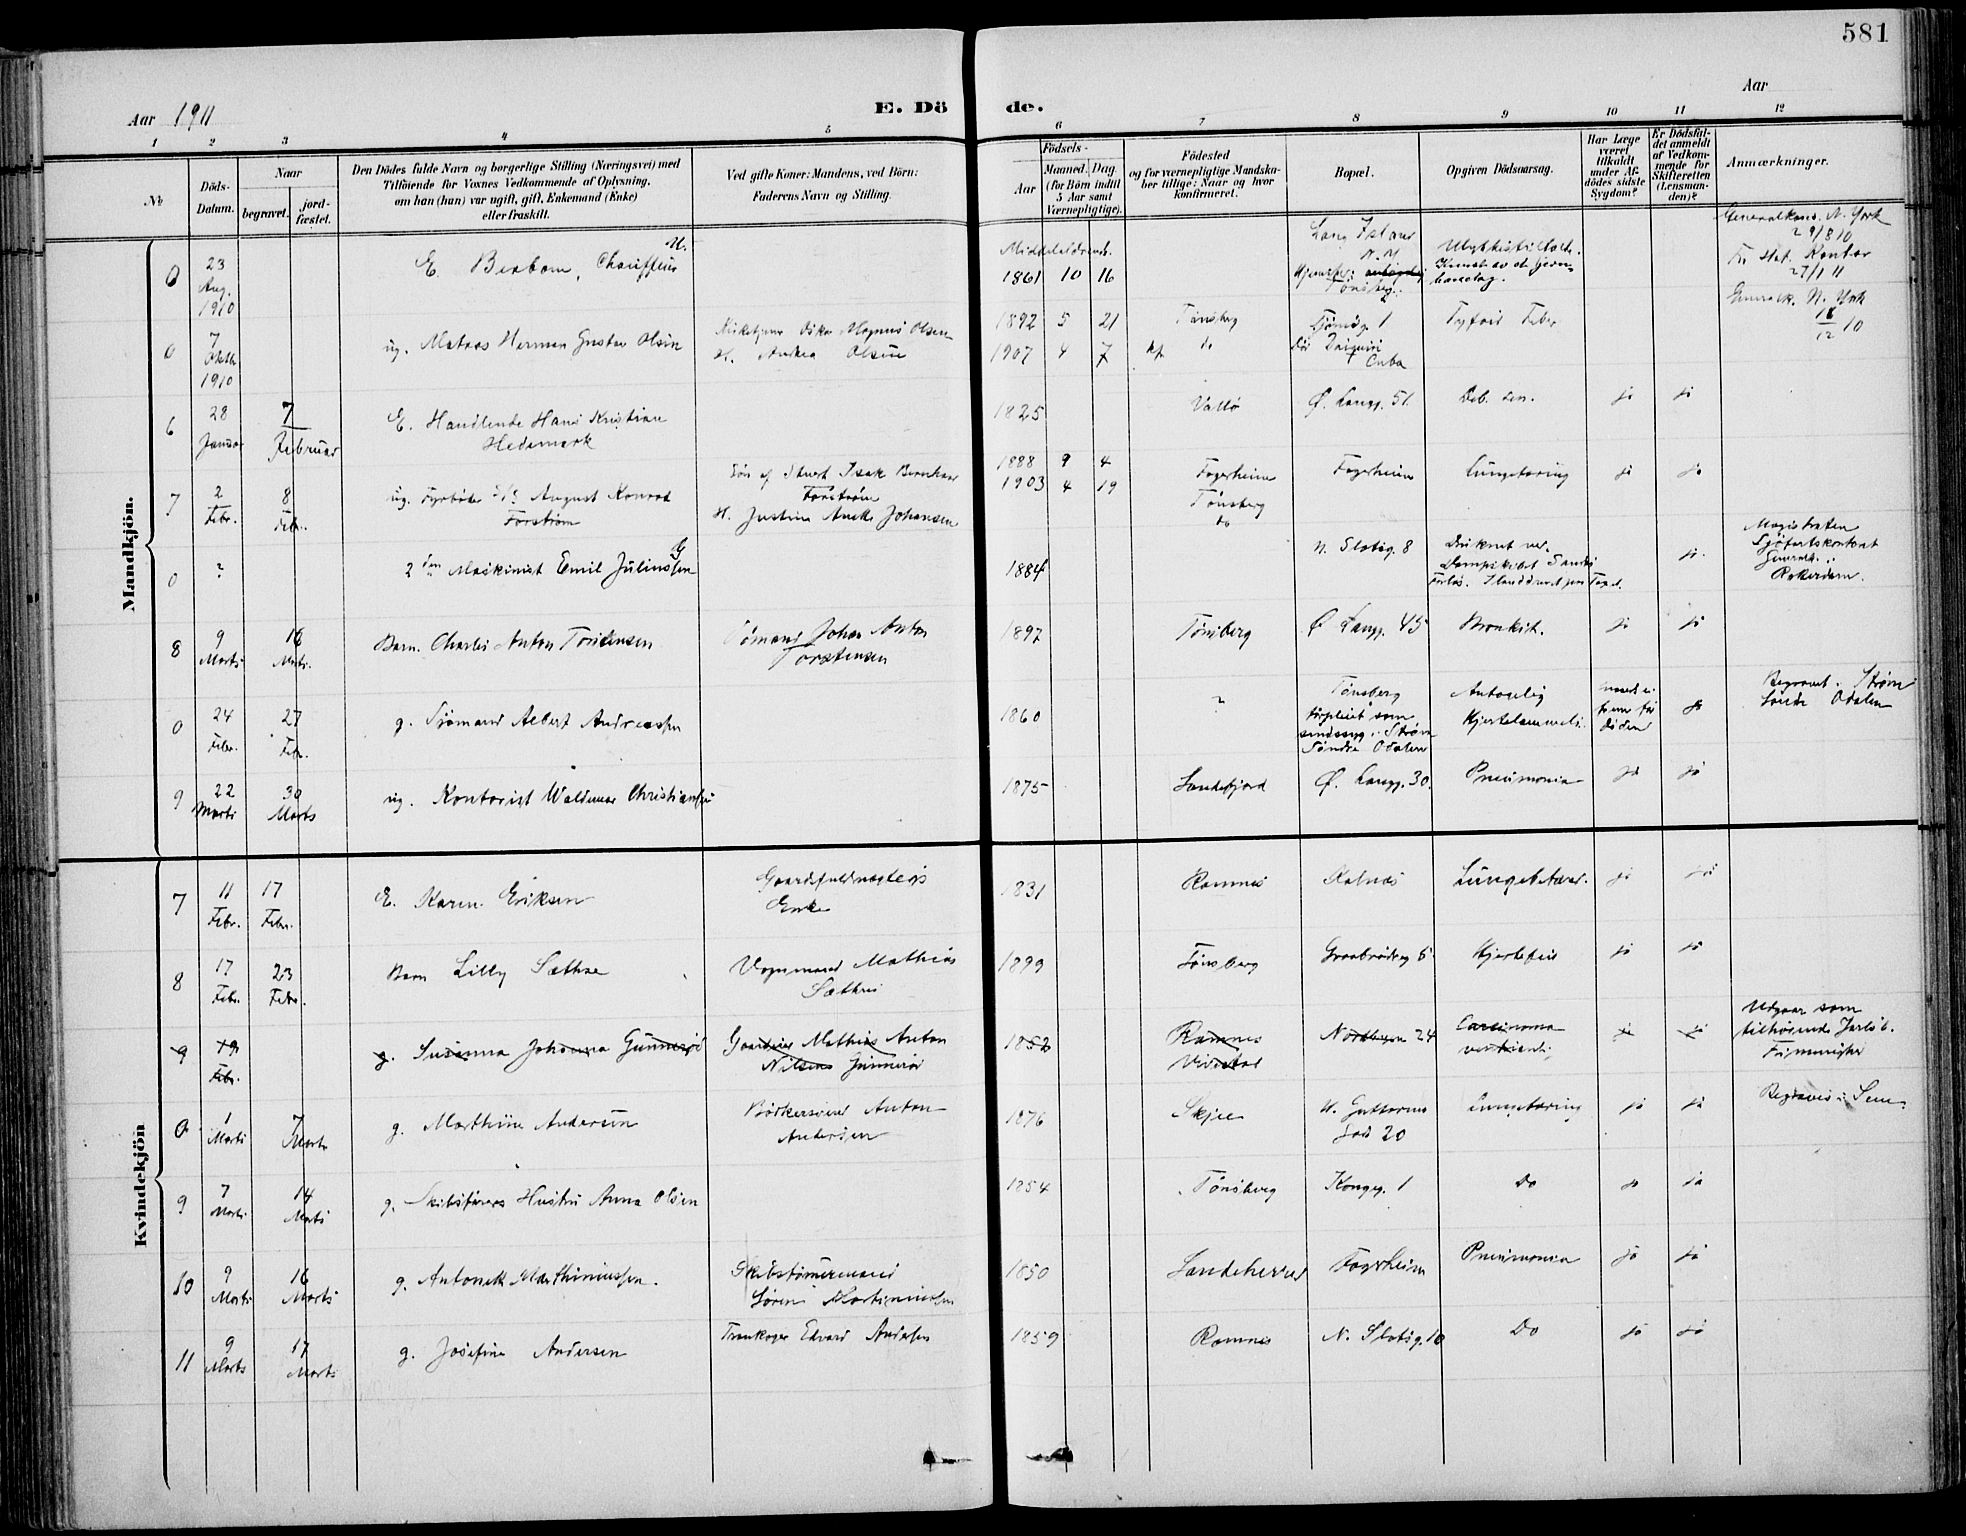 581
Aar 1911
E. Dö de.
Aar
1 2 3 4 5 6 7 8 9 10 11 12
No
Döds-Datum.
Naar
begravet.
jord-fæstet.
Den Dödes fulde Navn og borgerlige Stilling (Næringsvei) med
Tilföiende for Voxnes Vedkommende af Oplysning,
om han (hun) var ugift, gift, Enkemand (Enke)
eller fraskilt.
Ved gifte Koner: Mandens, ved Börn:
Faderens Navn og Stilling.
Födsels-
Aar
Maaned.
Dag.
(for Börn indtil
5 Aar samt
Værnepligtige).
Födested
og for værnepligtige Mandska-
ber tillige: Naar og hvor
konfirmeret.
Bopæl.
Opgiven Dödsaarsag.
Har Læge
været
tilkaldt
under Af-
dödes sidste
Sygdom?
Er Dödsfal-
det anmeldt
af Vedkom-
mende for
Skifteretten
(Lensman-
den)?
Anmærkninger.
Mandkjön.
0 23 Aug. 1910
E. Chauffeur
1861 10 16
Long Island
N. Y.
Tönsberg
Generalkons. N. York
29/8 10
Kontor
27/1 11
0 7 Oktb. 1910
ug. Herman Gustav Olsen
Magnus Olsen
H. Andrea Olsen
1892 5 21
1907 4 7
Tönsberg
do
Cuba
N. York
10
6 28 Januar 7 Februar
E. Handlende Hans Kristian
Hedemark
1825
Vallö
Ø. Langg. 51
Deb. sen.
ja ja
7 2 Febr. 8 Febr.
ug. Fyrböder August Konrad
Forström
Sön af Stuert Isak Bernhard
Forström
H. Justine Johansen
1888 9 4
1903 4 19
Fagerheim
Tönsberg
do
Fagerheim
Lungetæring
ja ja
0 ?
2den Maskinist Emil Juliussen
G
1884
N. Slotsg. 8
Druknet ved
ja.
Magistraten
Sjöfartskontoret
8 9 Marts 16 Marts
Barn. Charles Anton Torstensen
Johan Anton
Torstensen
1897
Tönsberg
Ø Langg. 45
Bronkit.
ja ja
0 24 Febr. 27 Febr.
g. Sjömand Albert Andreassen
1860
?
Tönsberg
forpleiet som
sindssyg i Ström
Söndre Odalen
Antagelig
Hjertelammelse
döden
ja
Begravet i Ström
Söndre Odalen
9 22 Marts 30 Marts
ug. Kontorist Waldemar Christiansen
1875
Sandefjord
Ø. Langg. 30.
Pneumonia
ja ja
Kvindekjön
7 11 Febr. 17 Febr.
E. Karen Eriksen
Gaardsfuldmægtigs
Enke
1831
Ramnes
Kalnæs
ja ja
8 17 Febr. 23 Febr.
Barn Lilly Sæthre
Vognmand Mathias
Sæthre
1899
Tönsberg
Graabrödreg 6
Hjertefeil
ja ja
9 19 Febr.
g. Susanna Johanna Gunneröd
Gaardeier Mathias Anton
Nilsen Gunneröd
1852
Ramnes
Nordbyen 24
Carcinoma
ventriculi
ja ja
Udgaar som
tilhörende Jarlsb.
Frimenighet
0 1 Marts 7 Marts
g. Marthine Andersen
Bödkersvend Anton
Andersen
1876
Skjee
N. Guttorms
Gade 20
Lungetæring
ja ja
Begraves i Sem
9 7 Marts 14 Marts
g. Skibsförers Hustru Anna Olsen
1854
Tönsberg
Kongeg. 1
Do
ja ja
10 9 Marts 16 Marts
g. Antonette Marthiniussen.
Skibstömermand
Sören Martiniussen
1850
Sandeherred
Fagerheim
Pneumonia
ja ja
11 9 Marts 17 Marts
g. Josefine Andersen
Trankoger Edvard Andersen
1859
Ramnes
N. Slotsg. 10
Do
ja ja